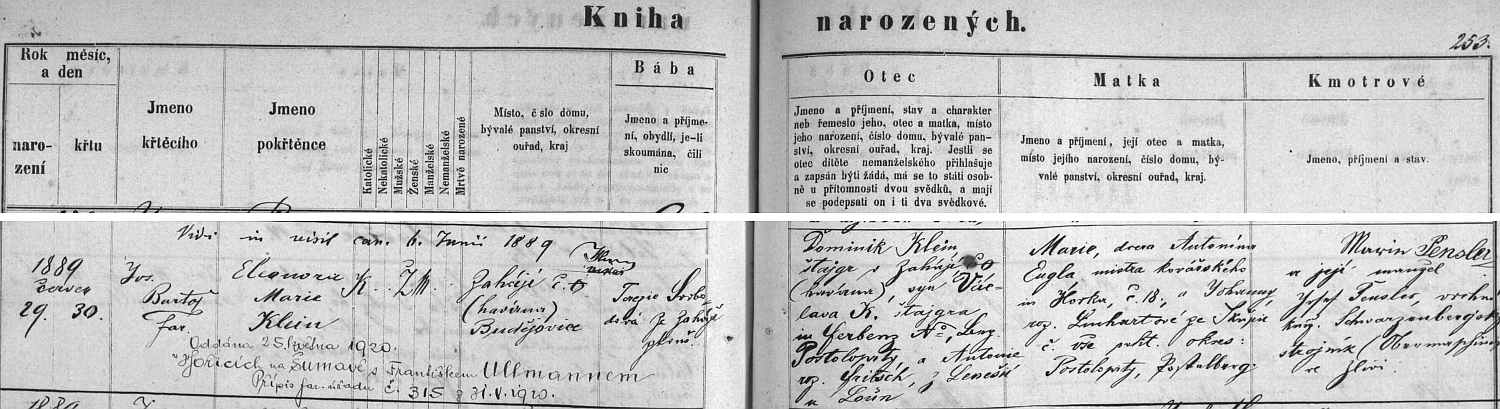 Kniha
narozených.
253.
Rok měsíc,
a den
naro-
zení
křtu
Jmeno
křtěcího
Jmeno
pokřtěnce
Katolické
Nekatolické
Mužské
Ženské
Manželské
Nemanželské
Mrtvě narozené
Místo, č slo domu,
bývalé panství, okresní
ouřad, kraj
Bába
Jmeno a příjme-
ní, obydlí, je-li
skoumána, čili
nic
Otec
Jmeno a příjmení, stav a charakter
neb řemeslo jeho, otec a matka, místo
jeho narození, číslo domu, bývalé pan-
ství, okresní ouřad, kraj. Jestli se
otec dítěte nemanželského přihlašuje
a zapsán býti žádá, má se to státi osob-
ně u přítomnosti dvou svědků, a mají
se podepsati on i ti dva svědkové.
Matka
Jmeno a příjmení, její otec a matka,
místo jejího narození, číslo domu, bý-
valé panství, okresní ouřad, kraj.
Kmotrové
Jmeno, příjmení a stav.
Vidi in visit can. 6. Junii 1889
1889
červen
29. 30.
Jos.
Bartoš
far.
Eleonora
Marie
Klein
K. Ž. M.
Zahájí č.
(havírna)
Budějovice
Terezie Svobo-
dová ze Zahájí
Oddána 25. května 1920.
v Hořicích na Šumavě s Františkem Ullmannem
Přípis far. úřadu č. 315 z 31.V.1920.
Dominik Klein
štajgr v Zahájí
(havírna), syn Vác-
lava K. štajgra
in Ferbenz
Postoloprty, a Antonie
roz. Fritsch, z Lenešic
u Loun
Marie, dcera Antonína
Engla mistra kovářského
in Horka, č. 18., a Johanny,
roz. Linhartové ze Skupic
okres-
Postoloprty, Postelberg.
Marie Pensler
a její manžel
Josef Pensler, vrchní
kníž. Schwarzenbergský
strojník (Obermaschinist)
ve Zlivi
1889